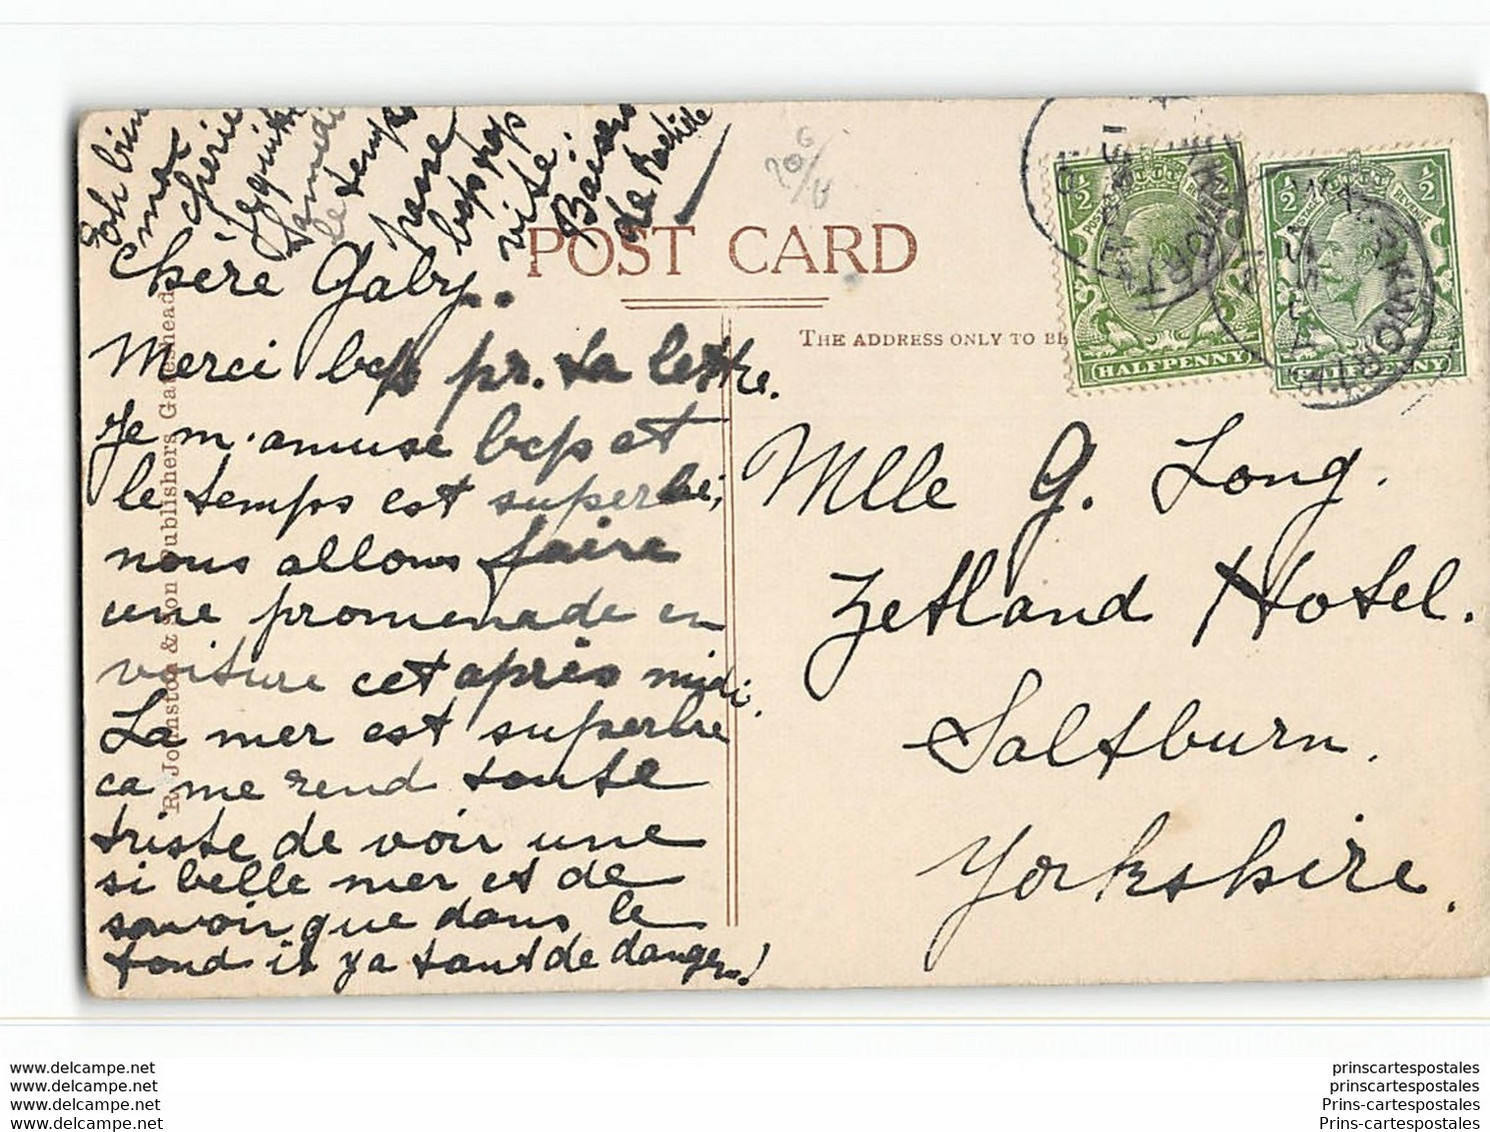 Eh bien
ma
chérie
je quitte
samedi
le temps
passe
bcp trop
vite!
Baisers
de
POST CARD
THE ADDRESS ONLY TO BE
HALFPENNY
HALFPENNY
Chère Gaby.
Merci bcp pr. ta lettre.
Je m'amuse bcp et
le temps est superbe,
nous allons faire
une promenade en
voiture cet après midi.
La mer est superbe
ca me rend toute
triste de voir une
si belle mer et de
savoir que dans le
fond il y a tant de dangers!
Mlle G. Long.
Zetland Hotel.
Saltburn.
Yorkshire.
R. Johnston & Son Publishers Gateshead
www.delcampe.net
www.delcampe.net
www.delcampe.net
www.delcampe.net
prinscartespostales
prinscartespostales
Prins-cartespostales
Prins-cartespostales